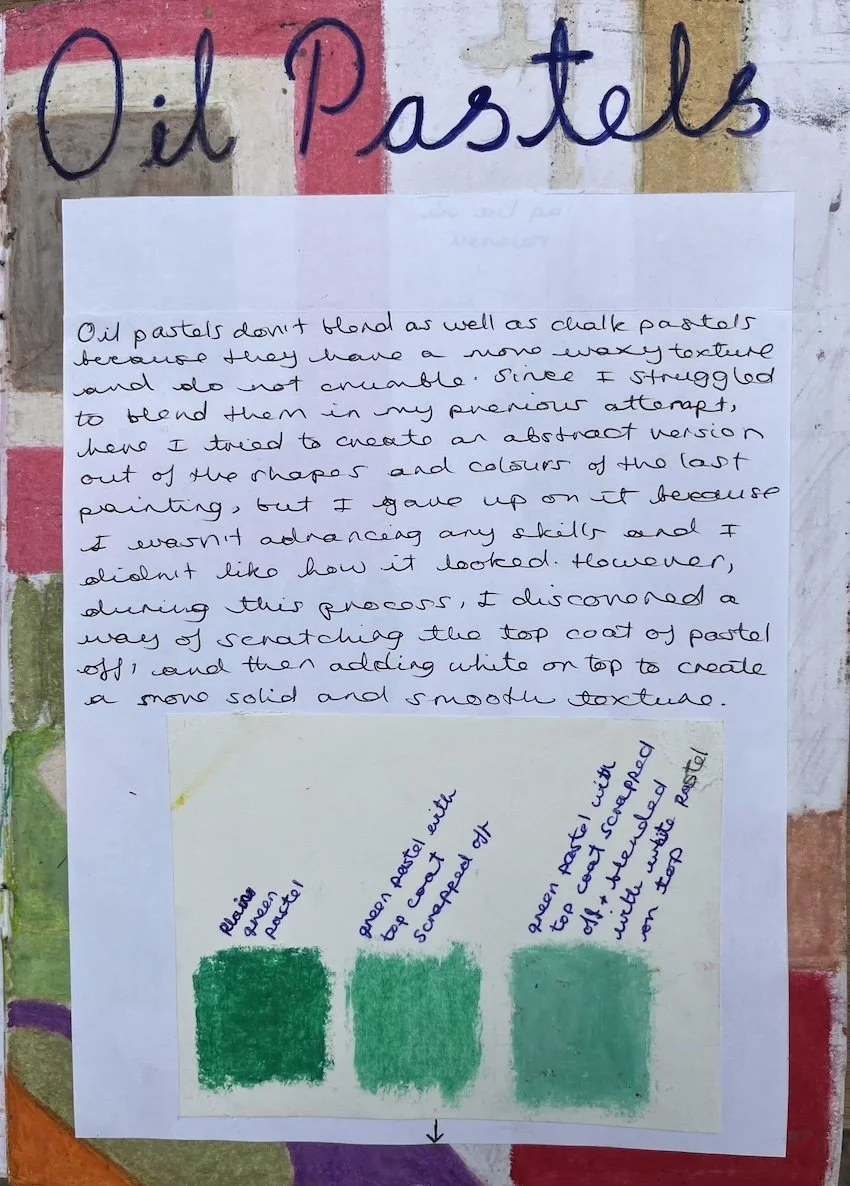 Oil Pastels
Oil pastels don't blend as well as chalk pastels
because they have a more waxy texture
and do not crumble. Since I struggled
to blend them in my previous attempt,
here I tried to create an abstract version
out of the shapes and colours of the last
painting, but I gave up on it because
I wasn't advancing any skills and I
didn't like how it looked. However,
during this process, I discovered a
way of scratching the top coat of pastel
off, and then adding white on top to create
a more solid and smooth texture.
Plain
green
pastel
green pastel with
top coat
scrapped off
green pastel with
top coat scrapped
off + blended
with white pastel
on top